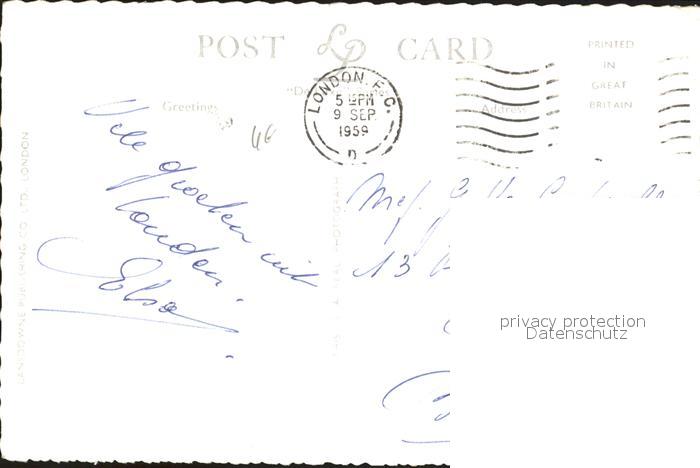 POST LP CARD
PRINTED
IN
GREAT
BRITAIN
Greetings
Address
LONDON. E.C.
5 15 PM
9 SEP
1959
D
Vele groeten uit
Londen.
Elsa
13
LANSDOWNE PUBLISHING CO. LTD. LONDON
THIS IS A REAL PHOTOGRAPH
privacy protection
Datenschutz